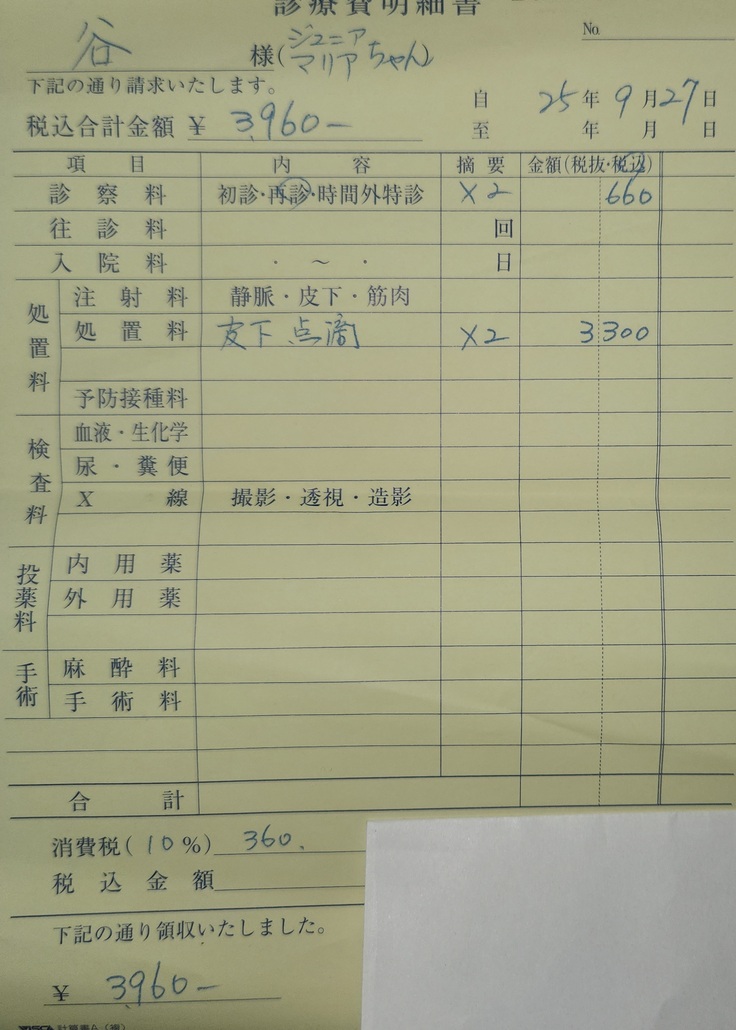 診療費明細書
No.
谷 様(ジュニア
マリアちゃん)
下記の通り請求いたします。
自 25年 9月27日
税込合計金額 ¥ 3,960-
至 年 月 日
項 目 内 容 摘 要 金額(税抜・税込)
診 察 料 初診・再診・時間外特診 ×2 660
往 診 料 回
入 院 料 ・ ~ ・ 日
処置料
注 射 料 静脈・皮下・筋肉
処 置 料 皮下点滴 ×2 3300
予防接種料
検査料
血液・生化学
尿・糞便
X 線 撮影・透視・造影
投薬料
内 用 薬
外 用 薬
手術
麻 酔 料
手 術 料
合 計
消費税(10%) 360.
税 込 金 額
下記の通り領収いたしました。
¥ 3,960-